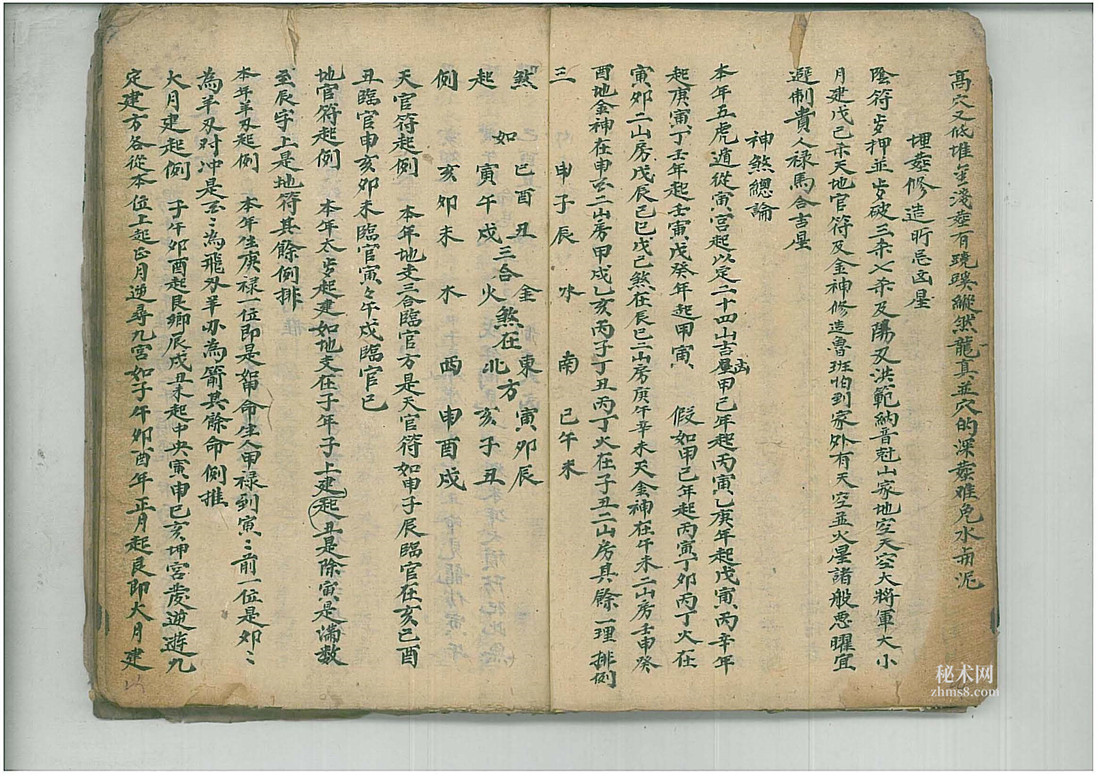 高穴又低堆至淺塟百蹺蹊縱然龍真並穴的深塟难免水和泥
埋塟修造所忌凶星
陰符歩押並歩破三杀七杀及陽刄洪範納音尅山家地空天空大將軍大小
月建戊己杀天地官符及金神修造魯班怕到家外有天空並火星諸般悪曜宜
避制貴人禄馬合吉星
神煞總論
本年五虎遁從寅宫起以定二十四山吉凶星甲己年起丙寅乙庚年起戊寅丙辛年
起庚寅丁壬年起壬寅戊癸年起甲寅 假如甲己年起丙寅丁卯丙丁火在
寅夘二山房戊辰己巳戊己煞在辰巳二山房庚午辛未天金神在午未二山房壬申癸
酉地金神在申酉二山房甲戌乙亥丙子丁丑丙丁火在子丑二山房其餘一理排例
三 申子辰 水 南 巳午未
煞 如 巳酉丑 金 東 寅卯辰
起 寅午戌 三合 火 煞在 北方 亥子丑
例 亥卯未 木 西 申酉戌
天官符起例 本年地支三合臨官方是天官符如申子辰臨官在亥巳酉
丑臨官申亥卯未臨官寅々午戌臨官巳
地官符起例 本年太歩起建如地支在子年子上建起丑是除寅是满数
至辰字上是地符其餘例排
本年羊刄起例 本年生庚禄一位即是如甲命生人甲禄到寅〻前一位是卯〻
為羊刄对冲是酉〻為飛刄羊刃為箭其餘命例推
大月建起例 子午卯酉起艮鄉辰戌丑未起中央寅申巳亥坤宫發逆遊九
定建方各從本位上起正月逆尋九宫如子午卯酉年正月起艮即大月建
秘术网
zhms8.com